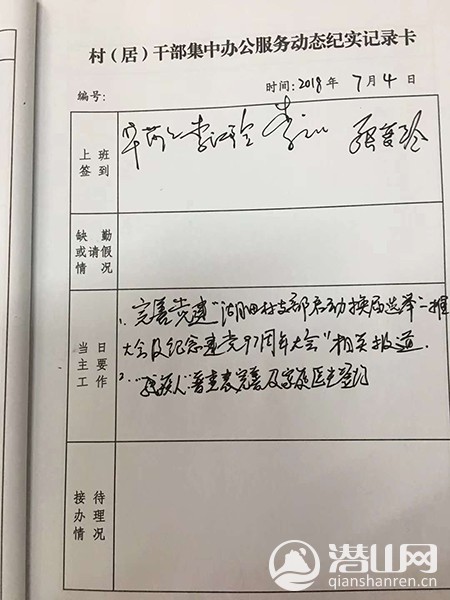 村（居）干部集中办公服务动态纪实记录卡
编号：
时间：2018年 7月4日
上班
签到
李江玲
缺勤
或请假
情况
当日
主要
工作
1、完善党建"湖田村支部启动换届选举"二推
大会及纪念建党97周年大会"相关报道．
2、"残疾人"普查表完善及家庭医生签约
接待
办理
情况
潜山网
qianshanren.cn